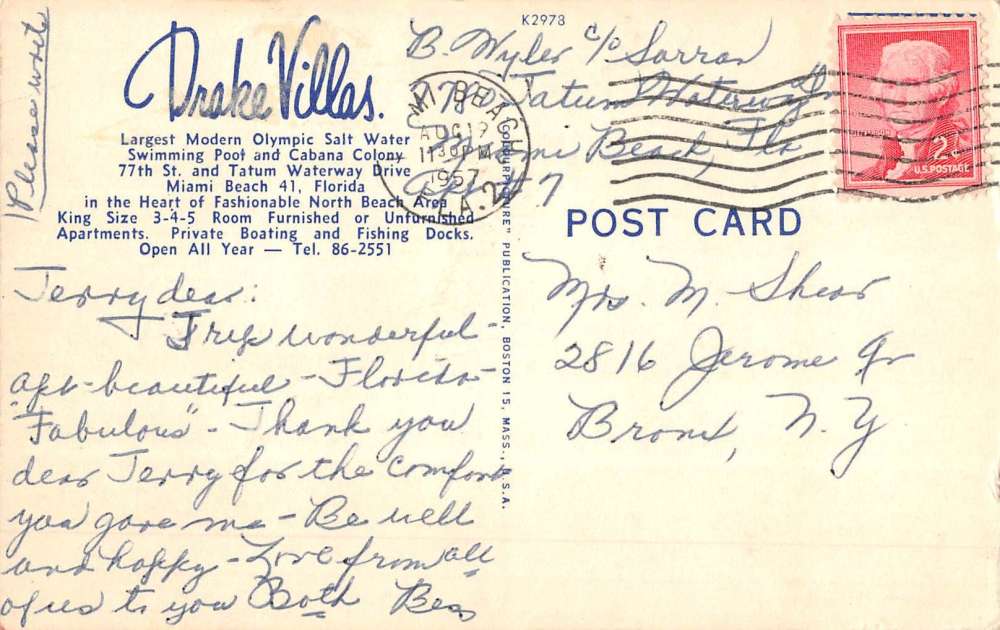 Please write
K2978
Drake Villas.
Largest Modern Olympic Salt Water
Swimming Pool and Cabana Colony
77th St. and Tatum Waterway Drive
Miami Beach 41, Florida
in the Heart of Fashionable North Beach Area
King Size 3-4-5 Room Furnished or Unfurnished
Apartments. Private Boating and Fishing Docks.
Open All Year — Tel. 86-2551
B. Wyler c/o Sarran
Tatum Waterway Dr
Miami Beach, Fla
MI BEACH
AUG 19
11 30 PM
1957
FLA. 2
2¢
U.S. POSTAGE
POST CARD
PUBLICATION, BOSTON 15, MASS., U.S.A.
Jerry dear:
Trip wonderful -
apt - beautiful - Florida -
"Fabulous" - Thank you
dear Jerry for the comfort
you gave me - Be well
and happy - Love from all
of us to you Both Bess
Mrs. M. Shear
2816 Jerome Av
Bronx, N.Y